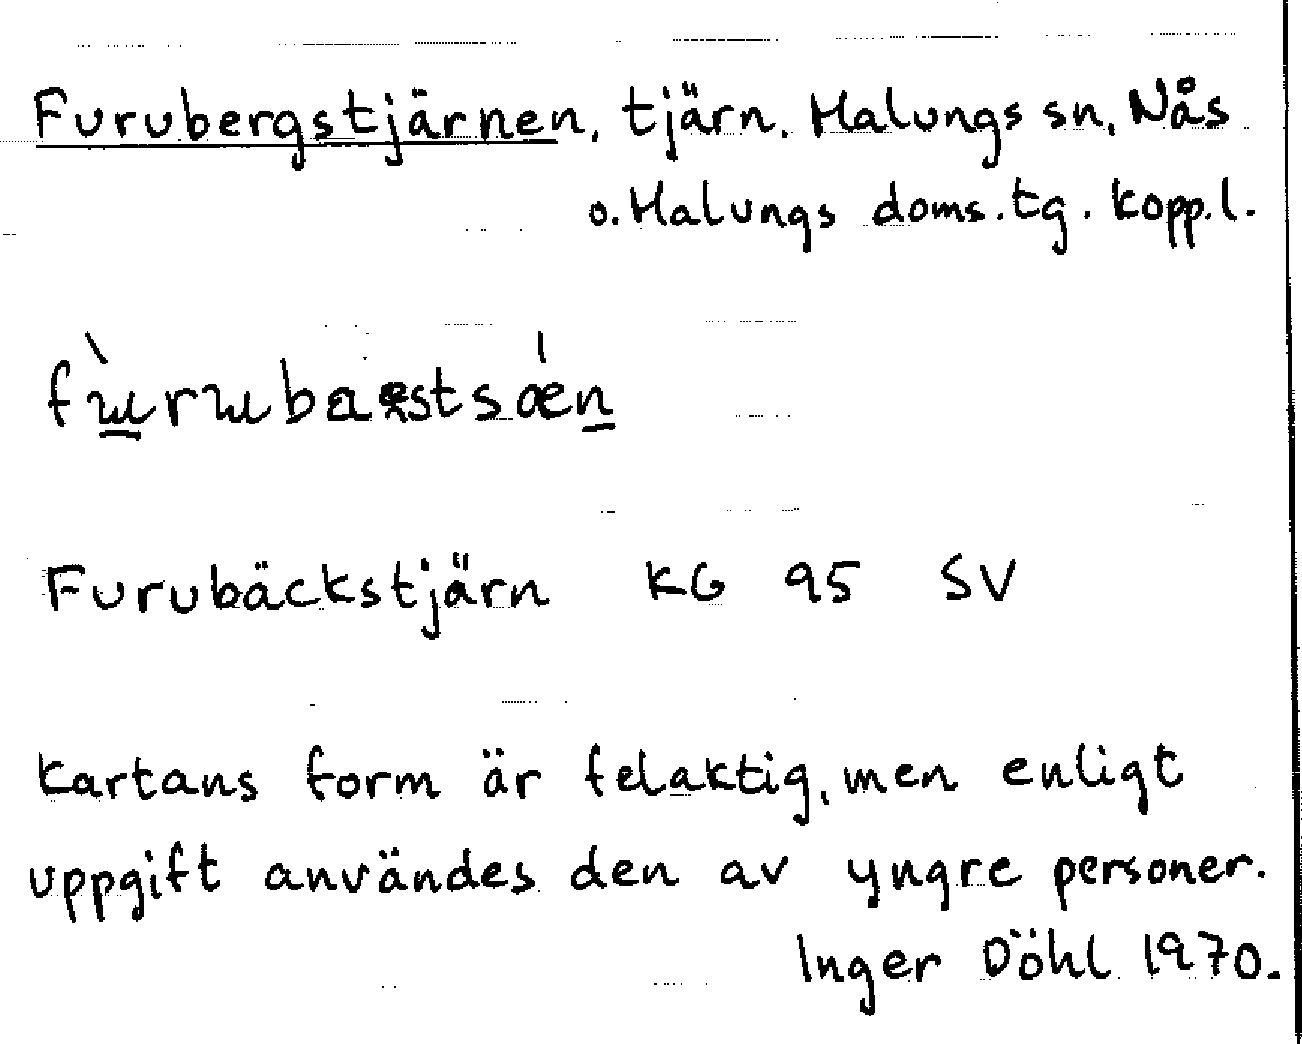 Furubergstjärnen, tjärn. Malungs sn, Nås
o. Malungs doms.tg. Kopp.l.
Furubäckstjärn KG 95 SV
Kartans form är felaktig, men enligt
uppgift användes den av yngre personer.
Inger Döhl 1970.